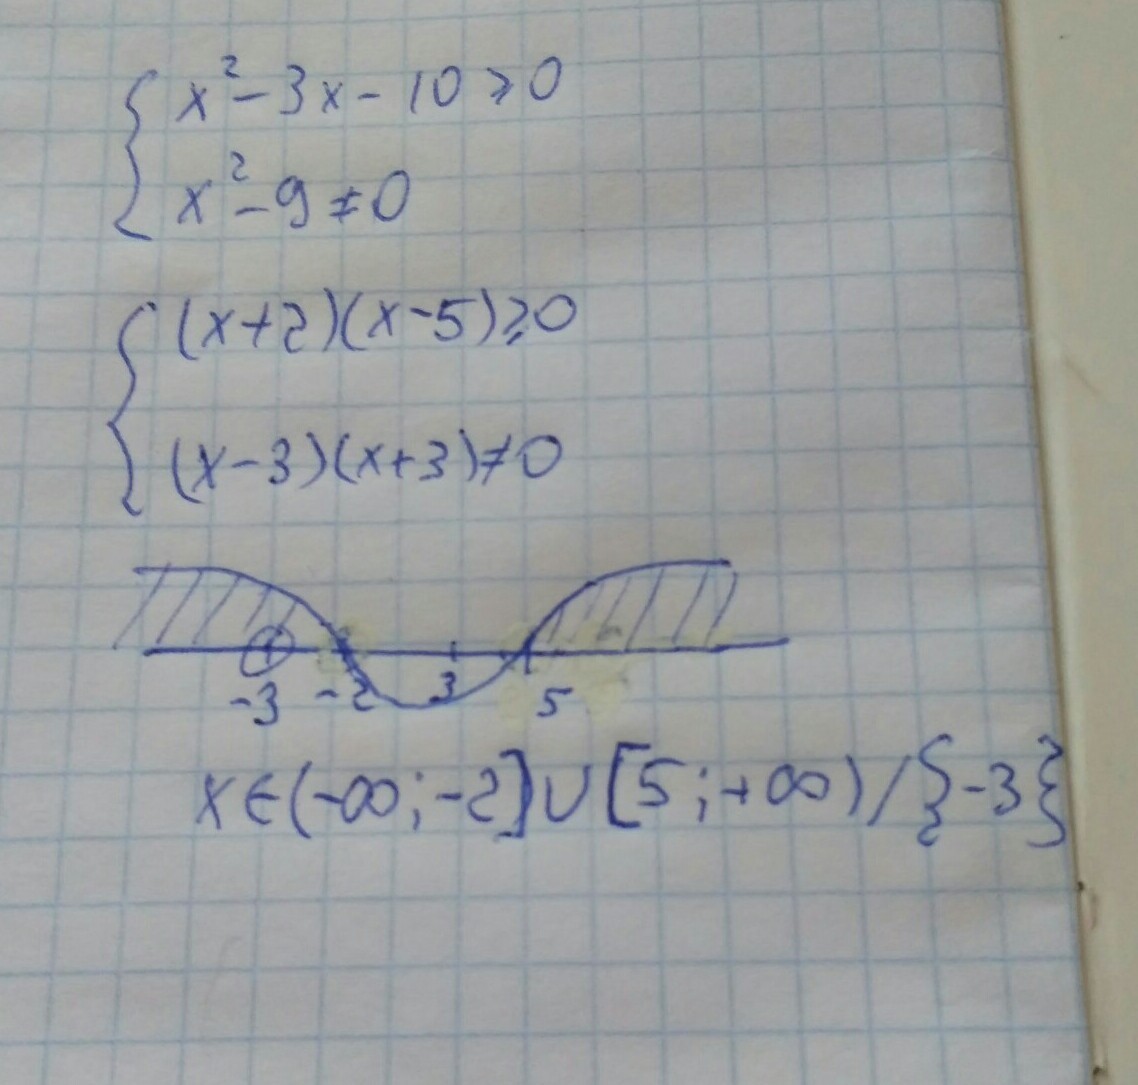 { x² - 3x - 10 ⩾ 0
x² - 9 ≠ 0
{ (x+2)(x-5) ⩾ 0
(x-3)(x+3) ≠ 0
-3 -2 3 5
x ∈ (-∞; -2] ∪ [5; +∞) / {-3}